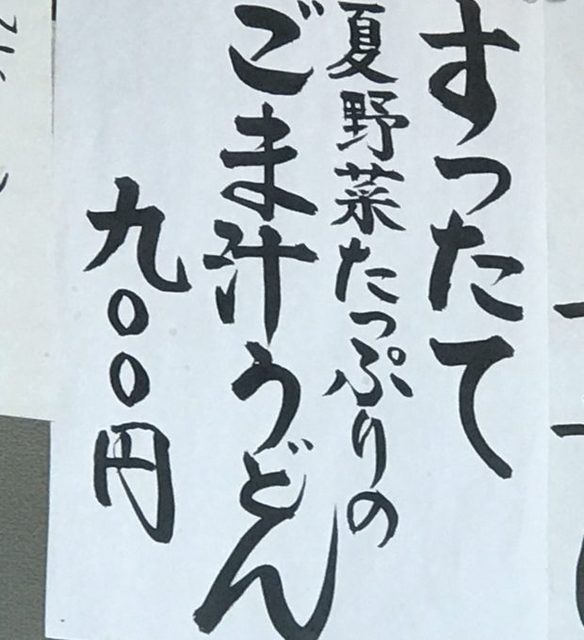 すったて
夏野菜たっぷりの
ごま汁うどん
九〇〇円